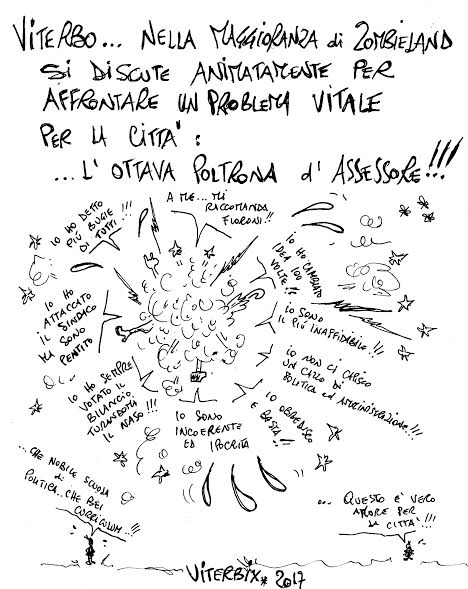 VITERBO... NELLA MAGGIORANZA di ZOMBIELAND
SI DISCUTE ANIMATAMENTE PER
AFFRONTARE UN PROBLEMA VITALE
PER LA CITTA':
...L'OTTAVA POLTRONA d'ASSESSORE!!!
A ME... MI
RACCOMANDA
FIORONI!!
IO HO DETTO
PIÙ BUGIE
DI TUTTI!!!
IO HO CAMBIATO
IDEA 100
VOLTE!!
IO HO
ATTACCATO
IL SINDACO
MA SONO
PENTITO
IO SONO
IL PIÙ INAFFIDABILE!!!
IO NON CI CAPISCO
UN CAZZO DI
POLITICA ed AMMINISTRAZIONE!!!
IO HO SEMPRE
VOTATO IL
BILANCIO
TURANDOMI
IL NASO!!!
IO OBBEDISCO
E BASTA!!
IO SONO
INCOERENTE
ED IPOCRITA
...CHE NOBILE SCUOLA
di
POLITICA...CHE BEI
CURRICULUM..!!
... QUESTO E' VERO
AMORE PER
LA CITTA'!!!
VITERBIX* 2017